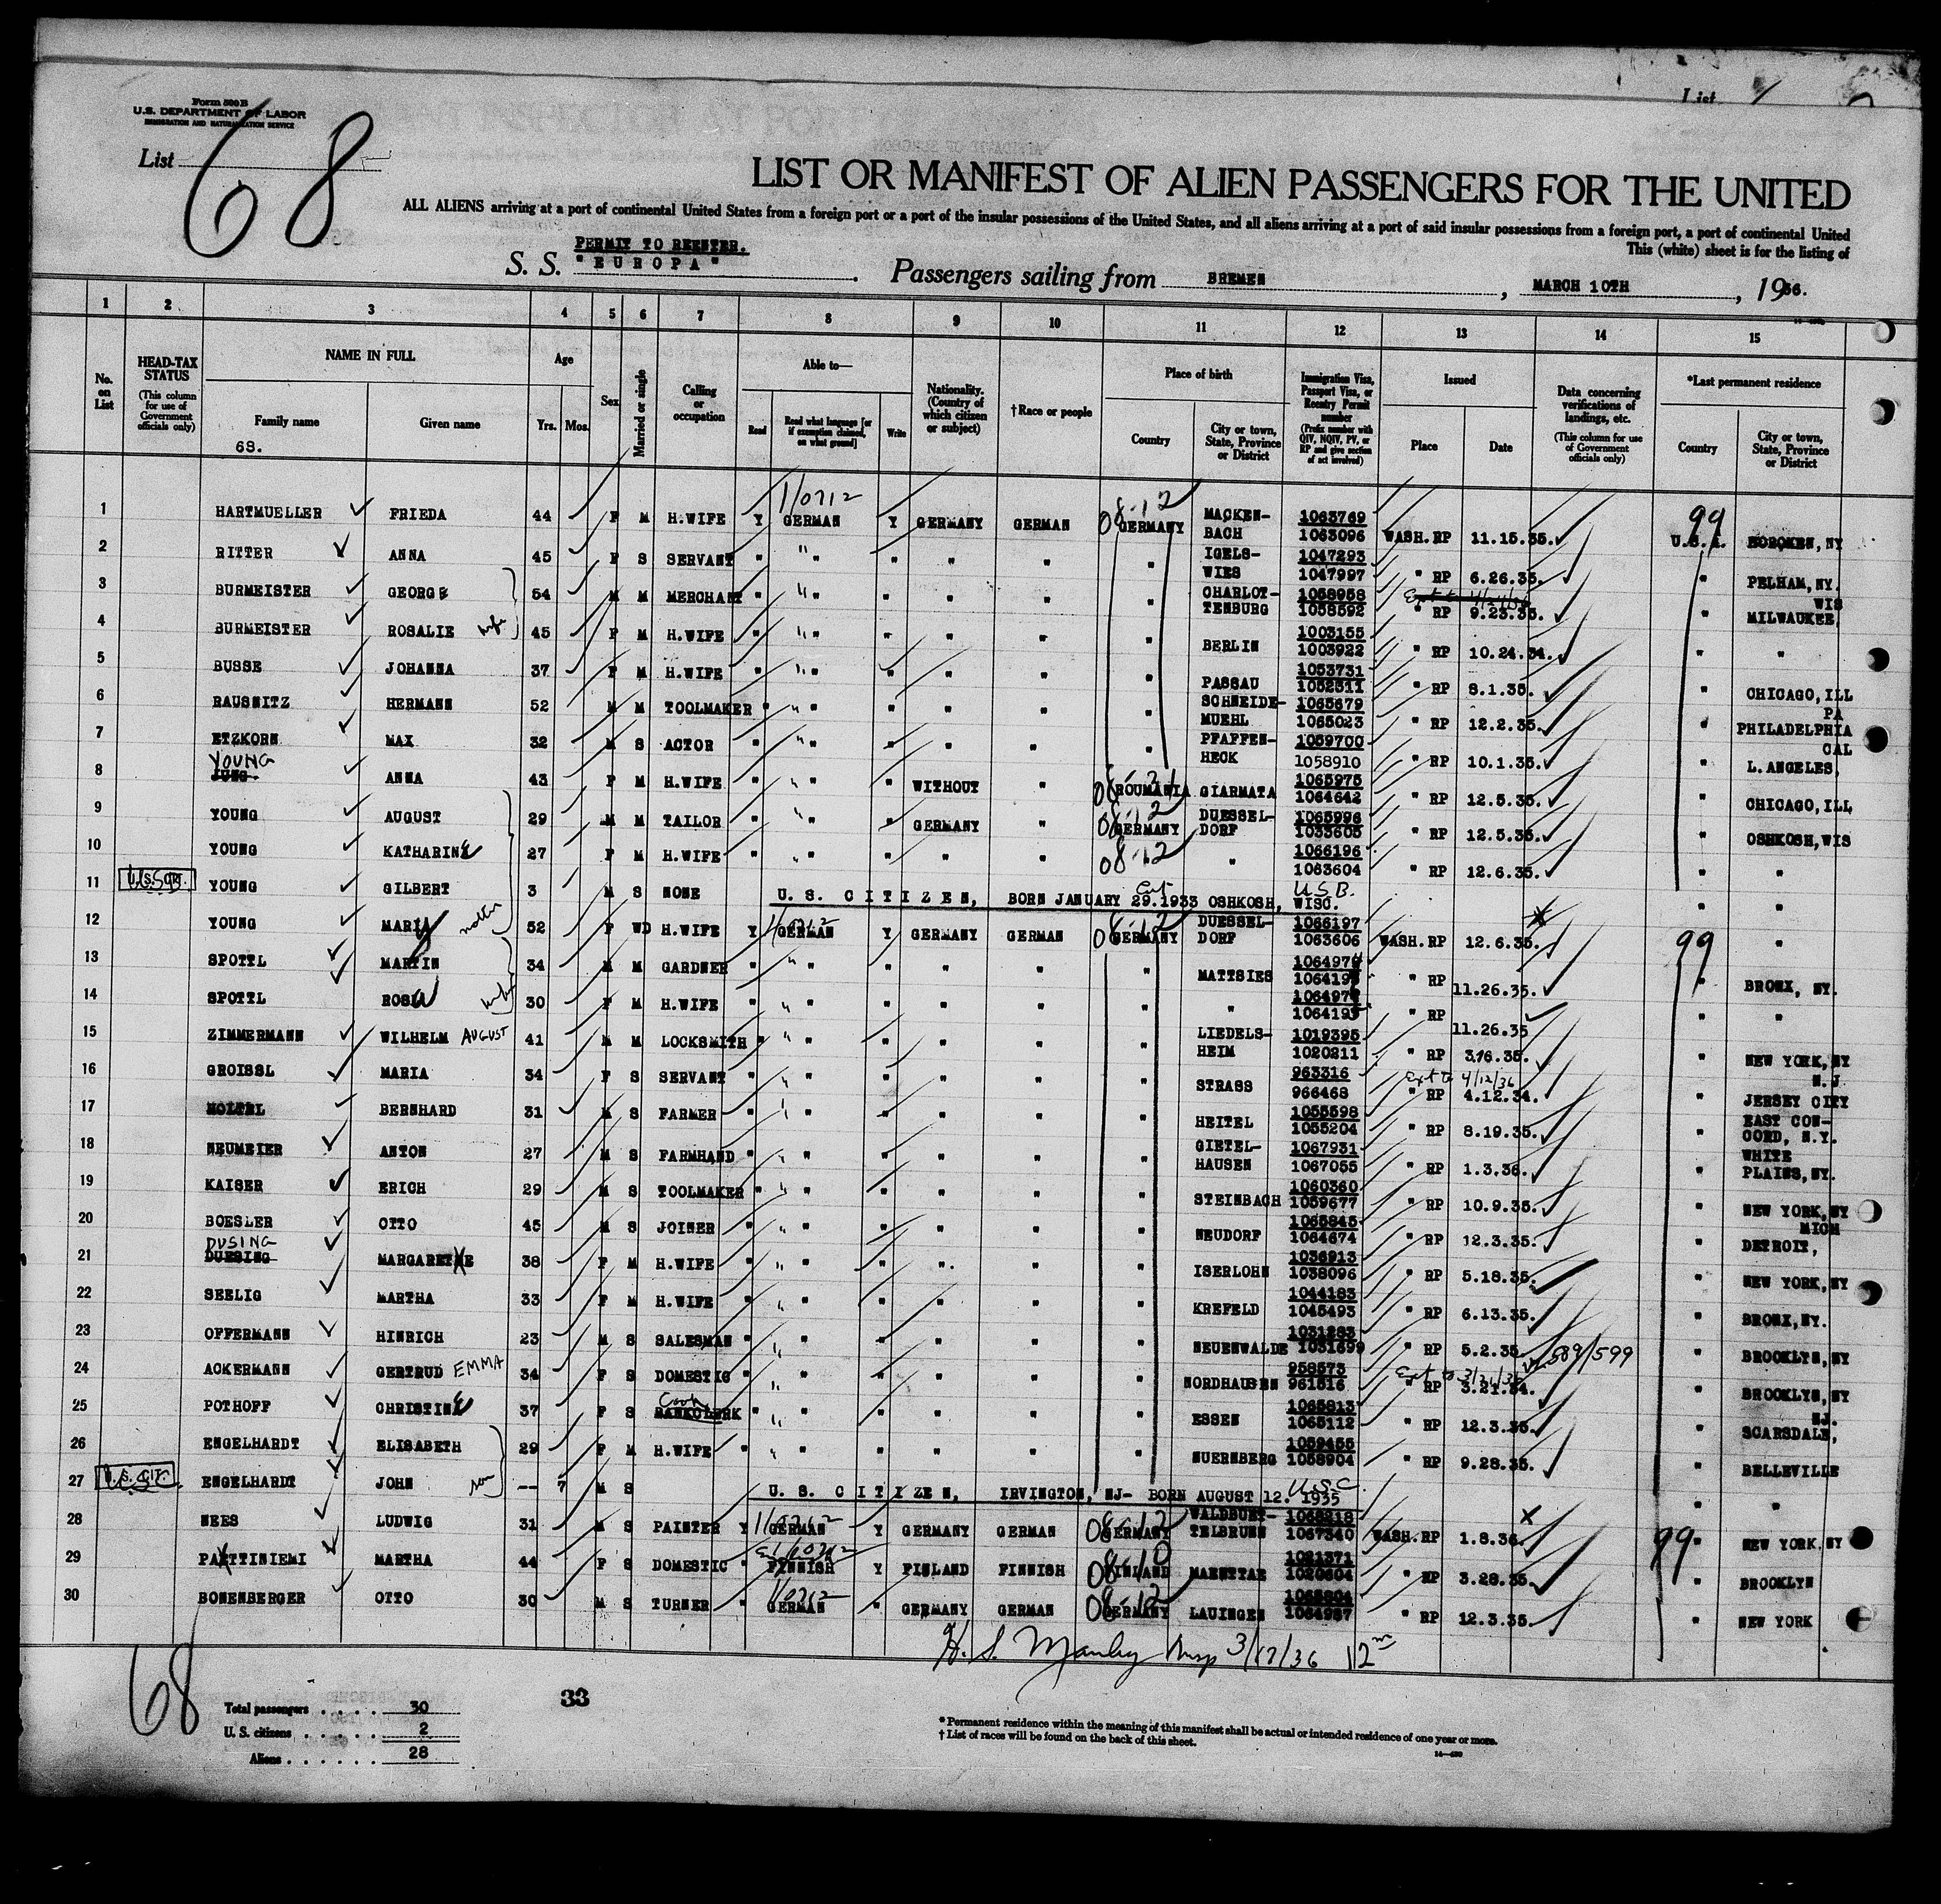 Form 500 B
U.S. DEPARTMENT OF LABOR
IMMIGRATION AND NATURALIZATION SERVICE
List
List 68
LIST OR MANIFEST OF ALIEN PASSENGERS FOR THE UNITED
ALL ALIENS arriving at a port of continental United States from a foreign port or a port of the insular possessions of the United States, and all aliens arriving at a port of said insular possessions from a foreign port, a port of continental United
This (white) sheet is for the listing of
PERMIT TO REENTER.
S. S. "EUROPA" Passengers sailing from BREMEN, MARCH 10TH, 1936.
1 2 3 4 5 6 7 8 9 10 11 12 13 14 15
No. on List
HEAD-TAX STATUS (This column for use of Government officials only)
NAME IN FULL Family name Given name
68.
Age Yrs. Mos.
Sex
Married or single
Calling or occupation
Able to— Read Read what language [or if exemption claimed, on what ground] Write
Nationality. (Country of which citizen or subject)
†Race or people
Place of birth Country City or town, State, Province or District
Immigration Visa, Passport Visa, or Reentry Permit number (Prefix number with QIV, NQIV, PV, or RP and give section of act involved)
Issued Place Date
Data concerning verifications of landings, etc. (This column for use of Government officials only)
*Last permanent residence Country City or town, State, Province or District
1 HARTMUELLER FRIEDA 44 F M H.WIFE Y GERMAN Y GERMANY GERMAN GERMANY MACKEN-BACH 1063769 1063096 WASH. RP 11.15.35. U.S.A. HOBOKEN, NY
2 RITTER ANNA 45 F S SERVANT " " " " " " IGELS-WIES 1047293 1047997 " RP 6.26.35. " PELHAM, NY.
3 BURMEISTER GEORGE 54 M M MERCHANT " " " " " " CHARLOT-TENBURG 1058958 1058592 " RP 9.23.35. " WIS MILWAUKEE,
4 BURMEISTER ROSALIE wife 45 F M H.WIFE " " " " " " BERLIN 1003155 1003922 " RP 10.24.34. " "
5 BUSSE JOHANNA 37 F M H.WIFE " " " " " " PASSAU 1053731 1052511 " RP 8.1.35. " CHICAGO, ILL
6 RAUSNITZ HERMANN 52 M M TOOLMAKER " " " " " " SCHNEIDE-MUEHL 1065679 1065023 " RP 12.2.35. " PA PHILADELPHIA
7 ETZKORN MAX 32 M S ACTOR " " " " " " PFAFFEN-HECK 1059700 1058910 " RP 10.1.35. " CAL L. ANGELES,
8 YOUNG JUNG ANNA 43 F M H.WIFE " " " WITHOUT " ROUMANIA GIARMATA 1065975 1064642 " RP 12.5.35. " CHICAGO, ILL
9 YOUNG AUGUST 29 M M TAILOR " " " GERMANY " GERMANY DUESSEL-DORF 1065996 1033605 " RP 12.5.35. " OSHKOSH, WIS
10 YOUNG KATHARINE 27 F M H.WIFE " " " " " 08-12 " 1066196 1063604 " RP 12.6.35. " "
11 U.S. CIT. YOUNG GILBERT 3 M S NONE U.S. CITIZEN, BORN JANUARY 29.1933 OSHKOSH, WISC. U.S.B. " "
12 YOUNG MARIA mother 52 F WD H.WIFE Y GERMAN Y GERMANY GERMAN GERMANY DUESSEL-DORF 1066197 1063606 WASH. RP 12.6.35. 99 "
13 SPOTTL MARTIN 34 M M GARDNER " " " " " " MATTSIES " RP 11.26.35. " BRONX, NY.
14 SPOTTL ROSA wife 30 F M H.WIFE " " " " " " " " RP 11.26.35 " "
15 ZIMMERMANN WILHELM AUGUST 41 M M LOCKSMITH " " " " " " LIEDELS-HEIM 1019395 1020211 " RP 3.16.35. " NEW YORK, NY
16 GROISSL MARIA 34 F S SERVANT " " " " " " STRASS 963316 966468 Ext to 4/12/36 " RP 4.12.34. " N.J. JERSEY CITY
17 BERNHARD 31 M S FARMER " " " " " " HEITEL 1055598 1055204 " RP 8.19.35. " EAST CON-CORD, N.Y.
18 NEUMEIER ANTON 27 M S FARMHAND " " " " " " GIETEL-HAUSEN 1067931 1067055 " RP 1.3.36. " WHITE PLAINS, NY.
19 KAISER ERICH 29 M S TOOLMAKER " " " " " " STEINBACH 1060360 1059677 " RP 10.9.35. " NEW YORK, NY
20 BOESLER OTTO 45 M S JOINER " " " " " " NEUDORF 1065845 1064674 " RP 12.3.35. " MICH DETROIT,
21 DUSING DUESING MARGARETHE 38 F M H.WIFE " " " " " " ISERLOHN 1036913 1038096 " RP 5.18.35. " NEW YORK, NY
22 SEELIG MARTHA 33 F M H.WIFE " " " " " " KREFELD 1044183 1045493 " RP 6.13.35. " BRONX, NY.
23 OFFERMANN HINRICH 23 M S SALESMAN " " " " " " NEUENWALDE 1031283 1031699 " RP 5.2.35. 589/599 " BROOKLYN, NY
24 ACKERMANN GERTRUD EMMA 34 F S DOMESTIC " " " " " " NORDHAUSEN 958573 961516 Ext to 3/21/36 " RP 3.21.34. " BROOKLYN, NY
25 POTHOFF CHRISTINE 37 F S Cook BANKCLERK " " " " " " ESSEN 1065813 1065112 " RP 12.3.35. " NJ. SCARSDALE,
26 ENGELHARDT ELISABETH 29 F M H.WIFE " " " " " " NUERNBERG 1059455 1058904 " RP 9.28.35. " BELLEVILLE
27 U.S. CIT. ENGELHARDT JOHN son -- 7 M S U.S. CITIZEN, IRVINGTON, NJ- BORN AUGUST 12. 1935 U.S.C. " "
28 NEES LUDWIG 31 M S PAINTER Y GERMAN Y GERMANY GERMAN GERMANY 1067340 WASH. RP 1.8.36. 99 " NEW YORK, NY
29 PAKTTINIEMI MARTHA 44 F S DOMESTIC " FINNISH Y FINLAND FINNISH FINLAND 1021371 1020604 " RP 3.28.35. " BROOKLYN
30 BONENBERGER OTTO 30 M S TURNER " GERMAN " GERMANY GERMAN GERMANY LAUINGEN 1064987 " RP 12.3.35. " NEW YORK
H. S. Manley Insp 3/17/36 12m
68
33
Total passengers . . . . 30
U. S. citizens . . . . . 2
Aliens . . . . . . 28
* Permanent residence within the meaning of this manifest shall be actual or intended residence of one year or more.
† List of races will be found on the back of this sheet.